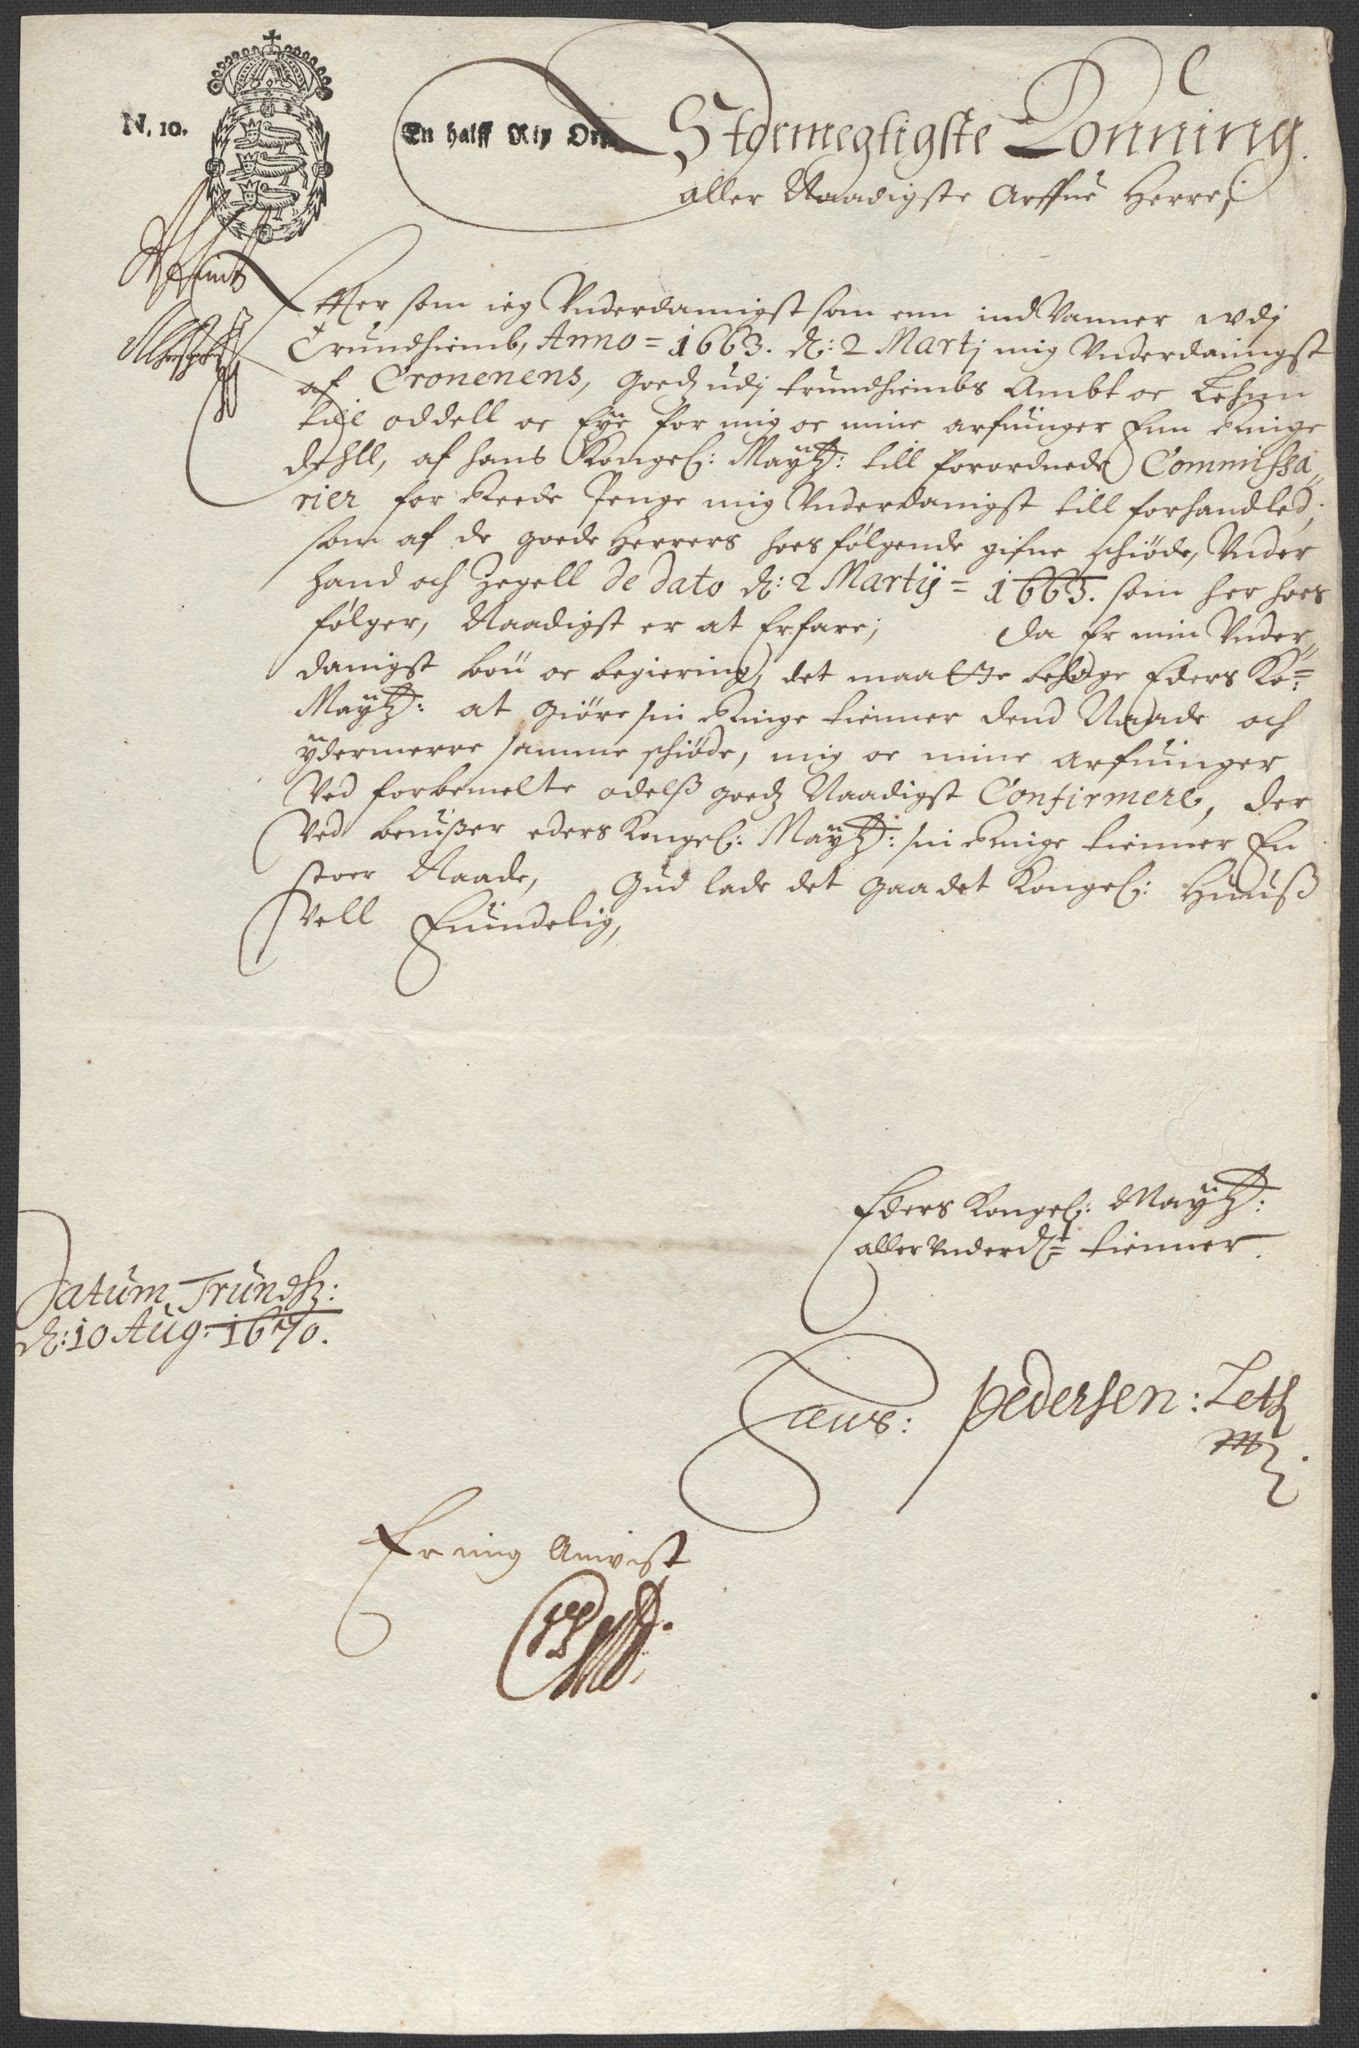 N. 10.
En halff Rix Ort
Stormegtigste Konning
aller Naadigste Arffue Herre;
Efftter som ieg Vnderdannigst som enn indVaaner vdj
Trundhiemb, Anno = 1663. d: 2 Martj mig Vnderdanigst
af Cronenens, goedz udj trundhiembs Ambt oc Lehnn
till oddell oc Eye for mig oc mine arfuinger Enn Ringe
dehll, af hans Kongel: Maytz: till forordnede Commissa„
rier for Reede Penge mig Vnderdanigst till forhandled,
som af de goede Herrers hoesfølgende gifne schiøde, Vnder
hand och Zegell de dato d: 2 Martij = 1663. som her hoes
følger, Naadigst er at Erfare; Da Er min Vnder„
danigst bøn oc begiering, det maatte behage Eders Ko=
Maytz: at giøre sin Ringe tienner dend Naade och
ydermerre samme schiøde, mig oc mine arfuinger
Ved forbemelte odelß goedz Naadigst Confirmere, der
Ved beuißer eders Kongel: Maytz: sin Ringe tienner En
stoer Naade, Gud lade det gaa det Kongel: Huuß
Vell Euindelig,
Eders Kongel: Maytz:
allerVnderdt= tienner.
Datum Trundh:
d: 10 Aug: 1670.
Laurs: Pedersen: Leth
Er mig Anvist